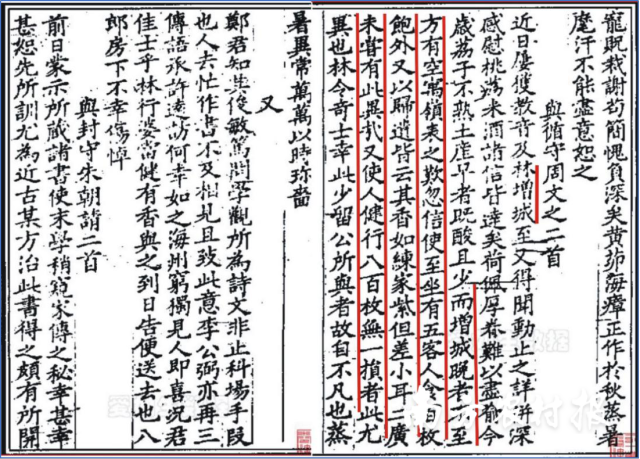 寵貺裁謝茍簡愧負深矣黃茆海瘴正作於秋蒸暑
麾汗不能盡意恕之
與循守周文之二首
近日屢獲教音及林增城至又得聞動止之詳併深
感慰桃荔米酒諸信皆達矣荷佩厚眷難以盡喻今
歲荔子不熟土產早者既酸且少而增城晚者不至
方有空寓嶺表之歎忽信使至坐有五客人食百枚
飽外又以歸遺皆云其香如練家紫但差小耳二廣
未嘗有此異哉又使人健行八百枚無一損者此尤
異也林令奇士幸此少留公所與者故自不凡也蒸
暑異常萬萬以時珍嗇
又
鄭君知其俊敏篤問學觀所為詩文非止科場手段
也人去忙作書不及相見且致此意李公弼亦再三
傳語承許遠訪何幸如之海州窮獨見人即喜況君
佳士乎林行婆當健有香與之到日告便送去也八
郎房下不幸傷悼
與封守朱朝請二首
前日蒙示所藏諸書使末學稍窺家傳之秘幸甚幸
甚恕先所訓尤為近古某方治此書得之頗有所開